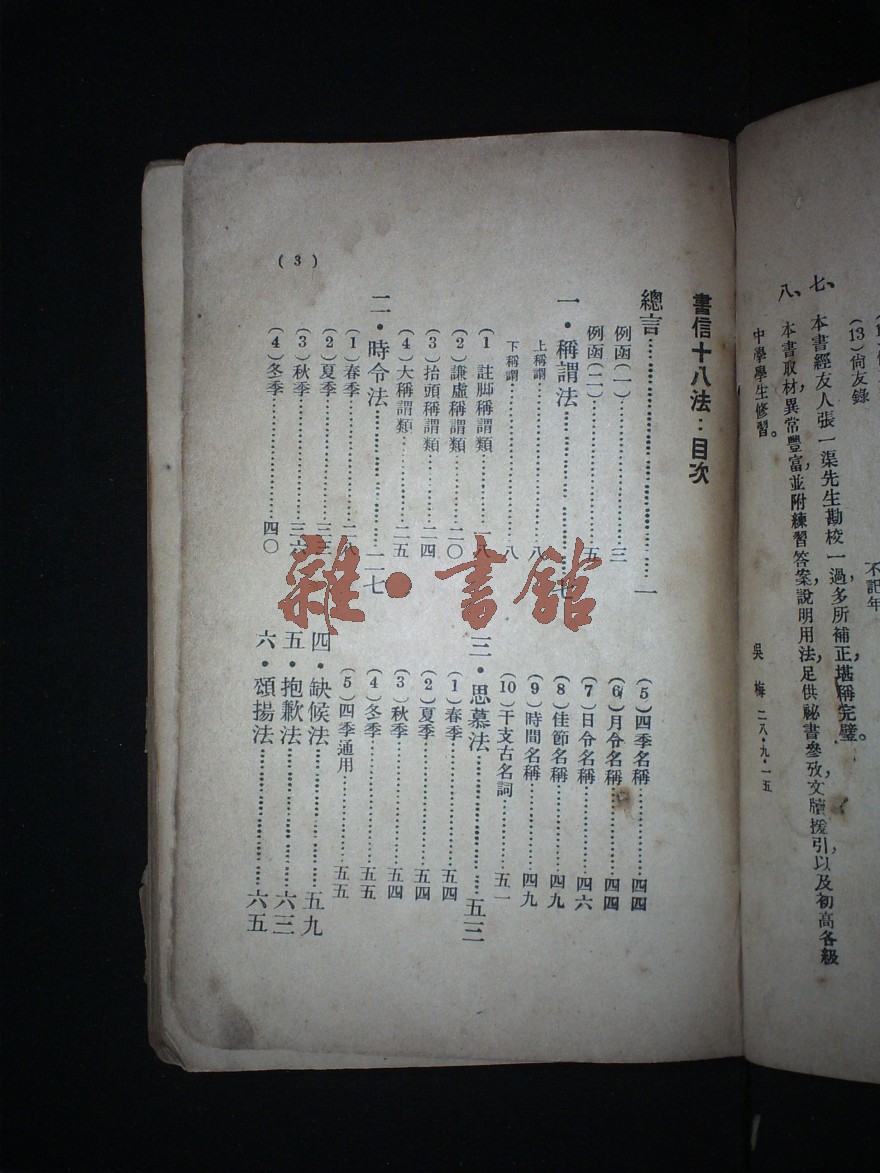 (13)尙友錄
不記年
七、本書經友人張一渠先生勘校一過，多所補正，堪稱完璧。
八、本書取材異常豐富，並附練習答案，說明用法，足供祕書參攷，文牘援引，以及初高各級
中學學生修習。
吳梅 二八・九・一五
書信十八法：目次
總言……一
例函(一)……三
例函(二)……五
一・稱謂法……七
上稱謂……八
下稱謂……八
(1)註脚稱謂類……一八
(2)謙虛稱謂類……二〇
(3)抬頭稱謂類……二四
(4)大稱謂類……二五
二・時令法……二七
(1)春季……二八
(2)夏季……三三
(3)秋季……三六
(4)冬季……四〇
(5)四季名稱……四四
(6)月令名稱……四四
(7)日令名稱……四六
(8)佳節名稱……四九
(9)時間名稱……四九
(10)干支古名詞……五一
三・思慕法……五三
(1)春季……五四
(2)夏季……五四
(3)秋季……五四
(4)冬季……五五
(5)四季通用……五五
四・缺候法……五九
五・抱歉法……六三
六・頌揚法……六五
(3)
雜・書館